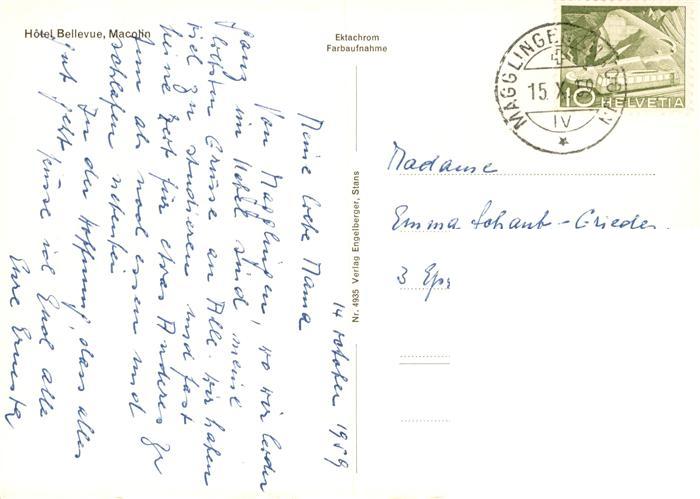 Hôtel Bellevue, Macolin
Ektachrom
Farbaufnahme
Nr. 4935 Verlag Engelberger, Stans
MAGGLINGEN
15. X. 59
IV
10 HELVETIA
14 october 1959
Meine liebe Mama
Von Magglingen, wo wir leider
ganz im Hotel sind meine
liebsten Grüsse an Alle. Wir haben
viel zu studieren und fast
keine Zeit für etwas Anderes zu
tun als noch essen und
schlafen nebenbei
In der Hoffnung, dass alles
gut geht küsse ich Euch alle
Eure Ernesta
Madame
Emma Schaub-Grieder